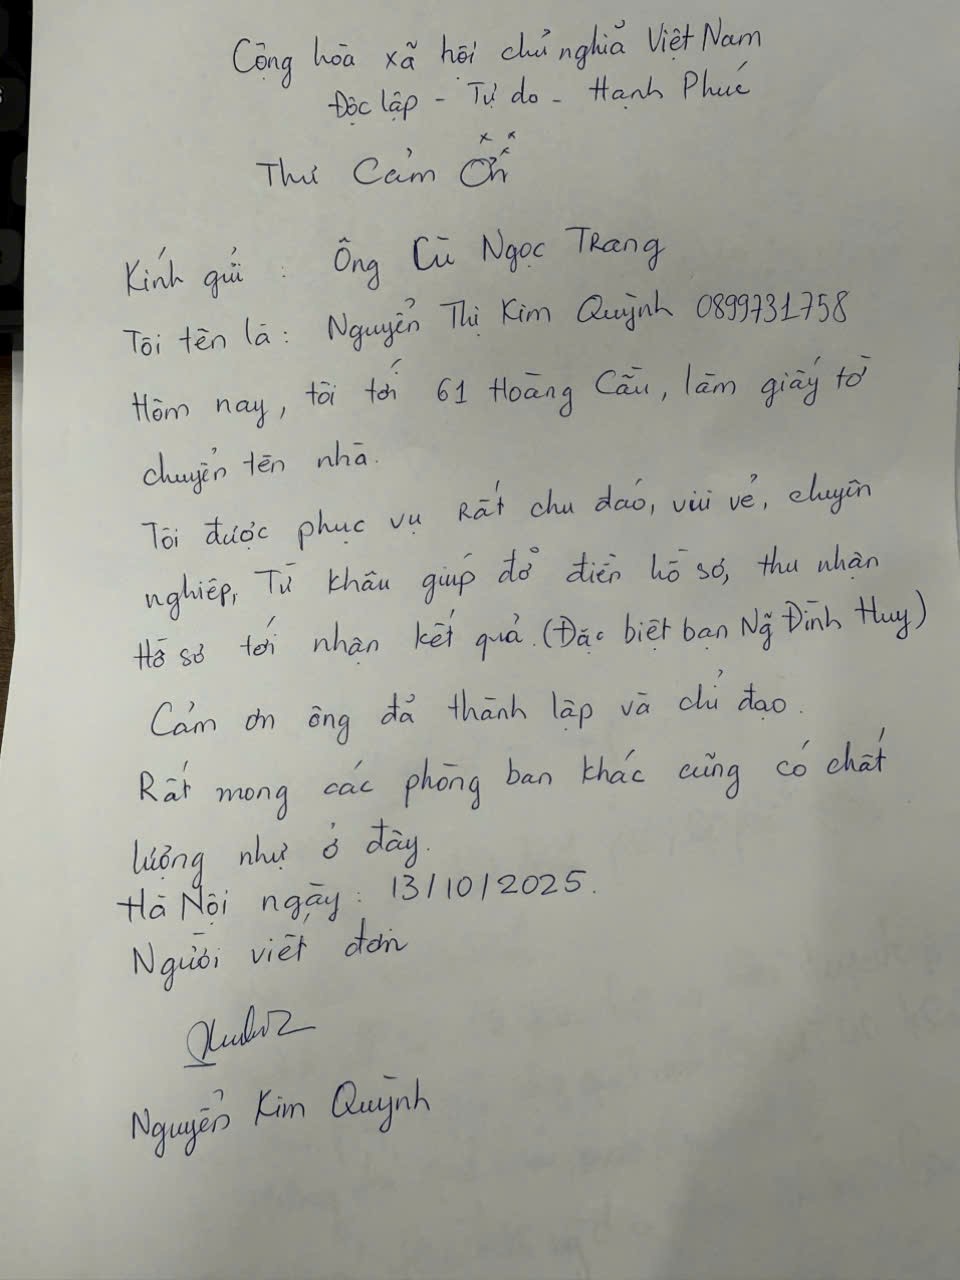 Cộng hòa xã hội chủ nghĩa Việt Nam
Độc lập - Tự do - Hạnh Phúc
Thư Cảm Ơn
Kính gửi : Ông Cù Ngọc Trang
Tôi tên là : Nguyễn Thị Kim Quỳnh 0899731758
Hôm nay, tôi tới 61 Hoàng Cầu, làm giấy tờ
chuyển tên nhà.
Tôi được phục vụ Rất chu đáo, vui vẻ, chuyên
nghiệp, Từ khâu giúp đỡ điền hồ sơ, thu nhận
Hồ sơ tới nhận kết quả. (Đặc biệt bạn Ng̃ Đình Huy)
Cảm ơn ông đã thành lập và chỉ đạo.
Rất mong các phòng ban khác cũng có chất
lượng như ở đây.
Hà Nội ngày : 13/10/2025.
Người viết đơn
Nguyễn Kim Quỳnh